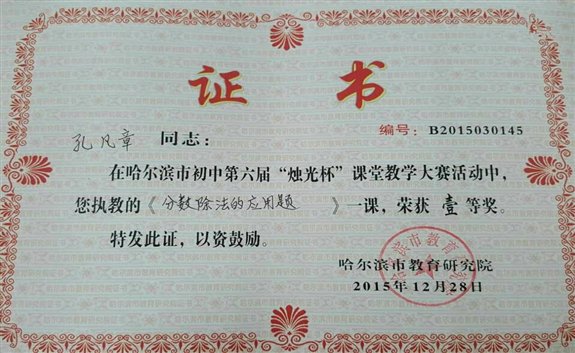 证书
编号：B2015030145
孔凡章 同志：
在哈尔滨市初中第六届“烛光杯”课堂教学大赛活动中，
您执教的《分数除法的应用题》一课，荣获 壹 等奖。
特发此证，以资鼓励。
哈尔滨市教育研究院
2015年12月28日